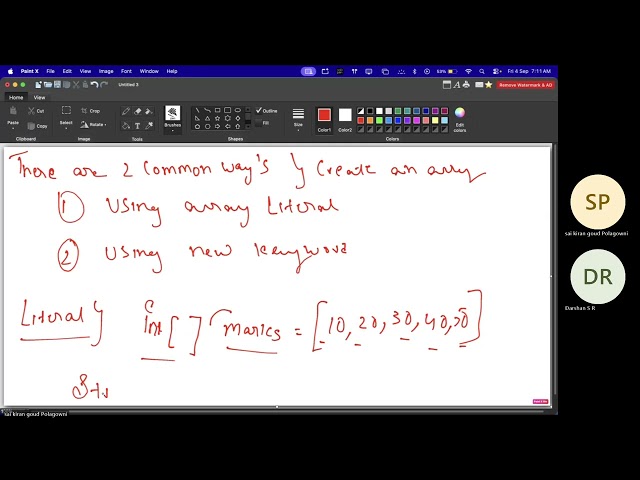 Paint X File Edit View Image Font Window Help 53% Fri 4 Sep 7:11 AM
Untitled 3 Remove Watermark & AD
Home View
Paste Cut Copy Select Crop Rotate Brushes Outline Fill Size Color1 Color2 Edit colors
Clipboard Image Tools Shapes Colors
There are 2 Common way's Create an array
1 Using array Literal
2 Using new keyword
Literal Int [ ] marks = [10, 20, 30, 40, 50]
Str
sai kiran goud Polagowni
SP
sai kiran goud Polagowni
DR
Darshan S R